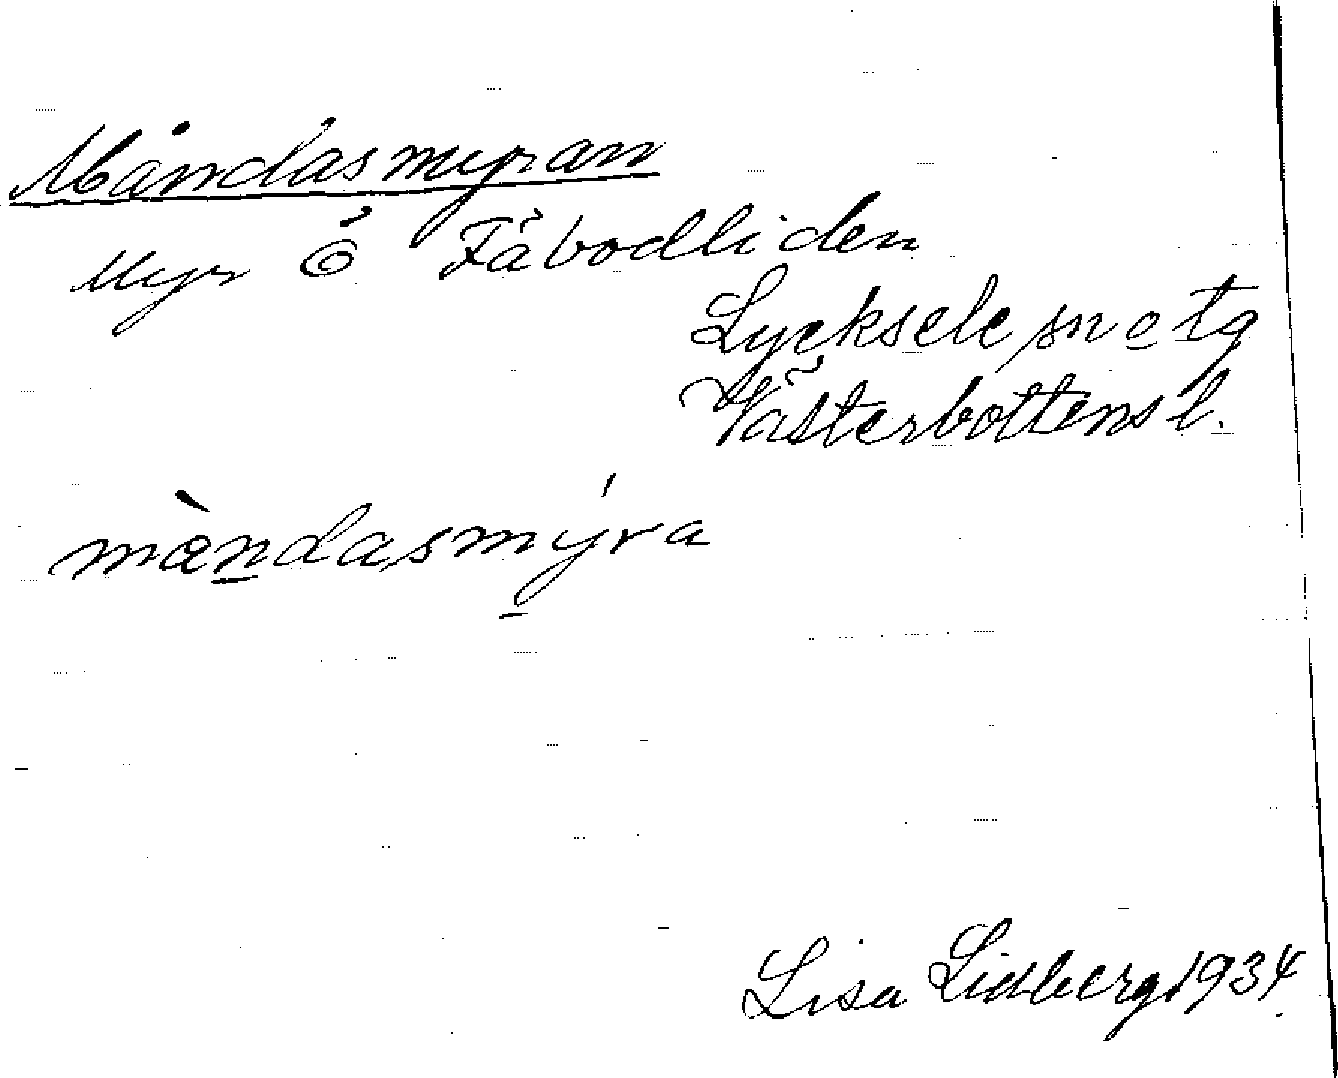 Måndasmyran
Myr Ö Fäbodliden
Lycksele sn o tg
Västerbottens l.
màndasmýra
Lisa Lidberg 1934